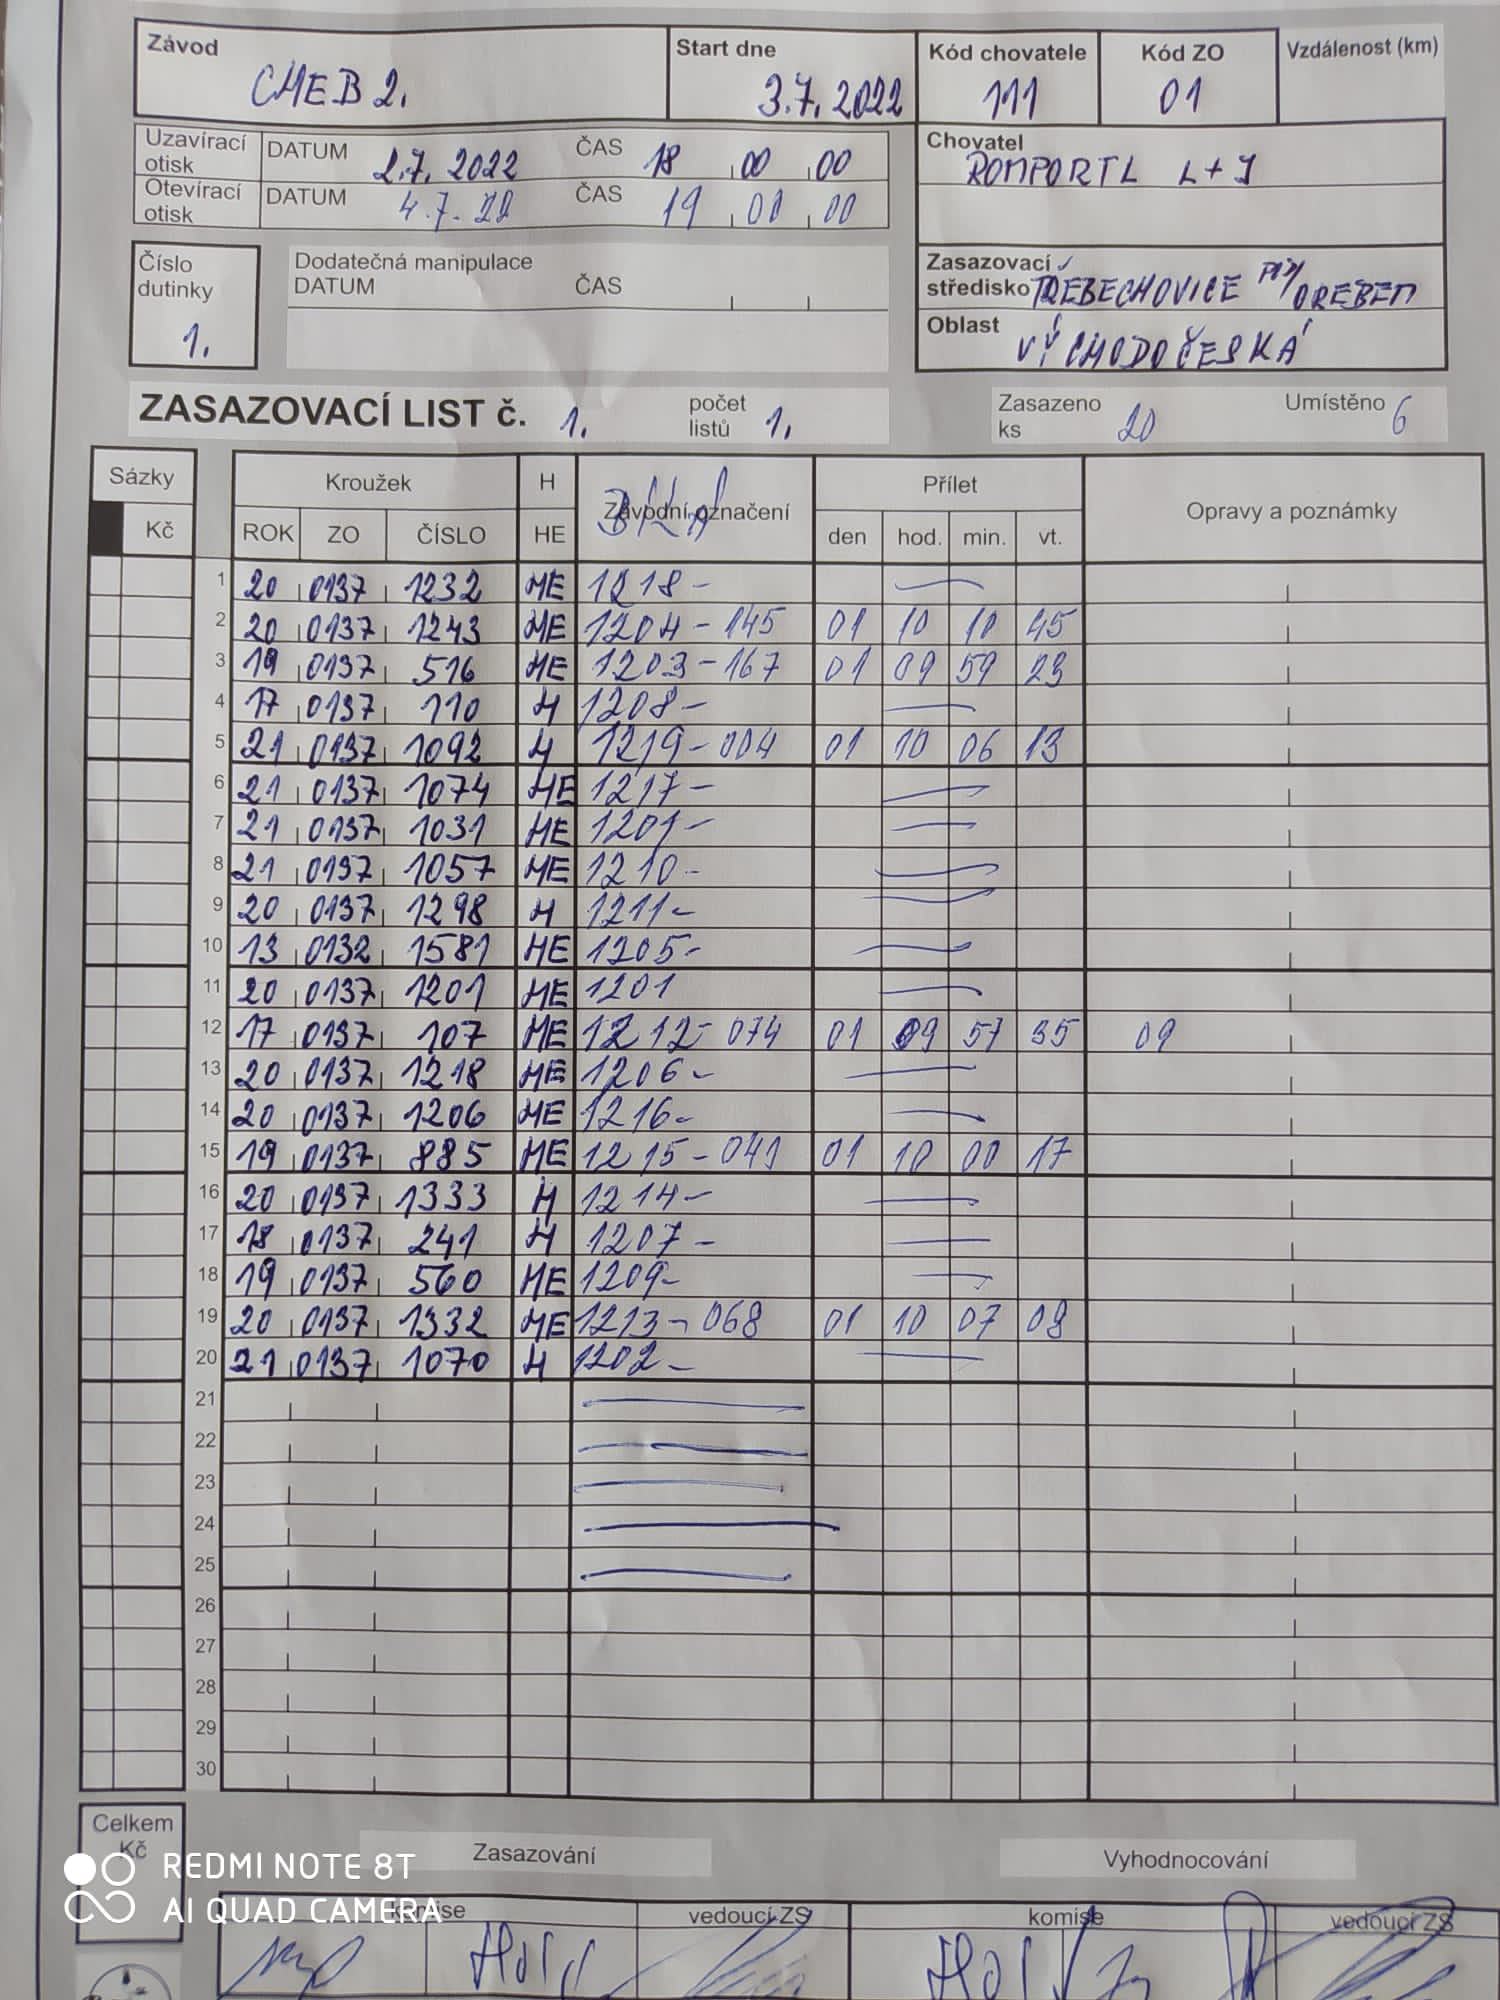 Závod Start dne Kód chovatele Kód ZO Vzdálenost (km)
CHEB 2. 3.7.2022 111 01
Uzavírací otisk DATUM 2.7.2022 ČAS 18 00 00
Otevírací otisk DATUM 4.7.22 ČAS 19 00 00
Chovatel
ROMPORTL L+J
Číslo dutinky
1.
Dodatečná manipulace
DATUM ČAS
Zasazovací středisko TŘEBECHOVICE POD OREBEM
Oblast VÝCHODOČESKÁ
ZASAZOVACÍ LIST č. 1. počet listů 1. Zasazeno ks 20 Umístěno 6
Sázky Kroužek H Závodní označení Přílet Opravy a poznámky
BÍLÁ
Kč ROK ZO ČÍSLO HE den hod. min. vt.
1 20 0137 1232 HE 1218 -
2 20 0137 1243 HE 1204 - 145 01 10 10 45
3 19 0137 516 HE 1203 - 167 01 09 59 23
4 17 0137 110 H 1208 -
5 21 0137 1092 H 1219 - 004 01 10 06 13
6 21 0137 1074 HE 1217 -
7 21 0137 1031 HE 1201 -
8 21 0137 1057 HE 1210 -
9 20 0137 1298 H 1211 -
10 13 0132 1581 HE 1205 -
11 20 0137 1201 HE 1201
12 17 0137 107 HE 1212 - 074 01 09 57 35 09
13 20 0137 1218 HE 1206 -
14 20 0137 1206 HE 1216 -
15 19 0137 885 HE 1215 - 041 01 10 00 17
16 20 0137 1333 H 1214 -
17 18 0137 241 H 1207 -
18 19 0137 560 HE 1209 -
19 20 0137 1332 HE 1213 - 068 01 10 07 08
20 21 0137 1070 H 1202 -
21
22
23
24
25
26
27
28
29
30
Celkem Kč
Zasazování Vyhodnocování
komise vedoucí ZS komise vedoucí ZS
REDMI NOTE 8T
AI QUAD CAMERA